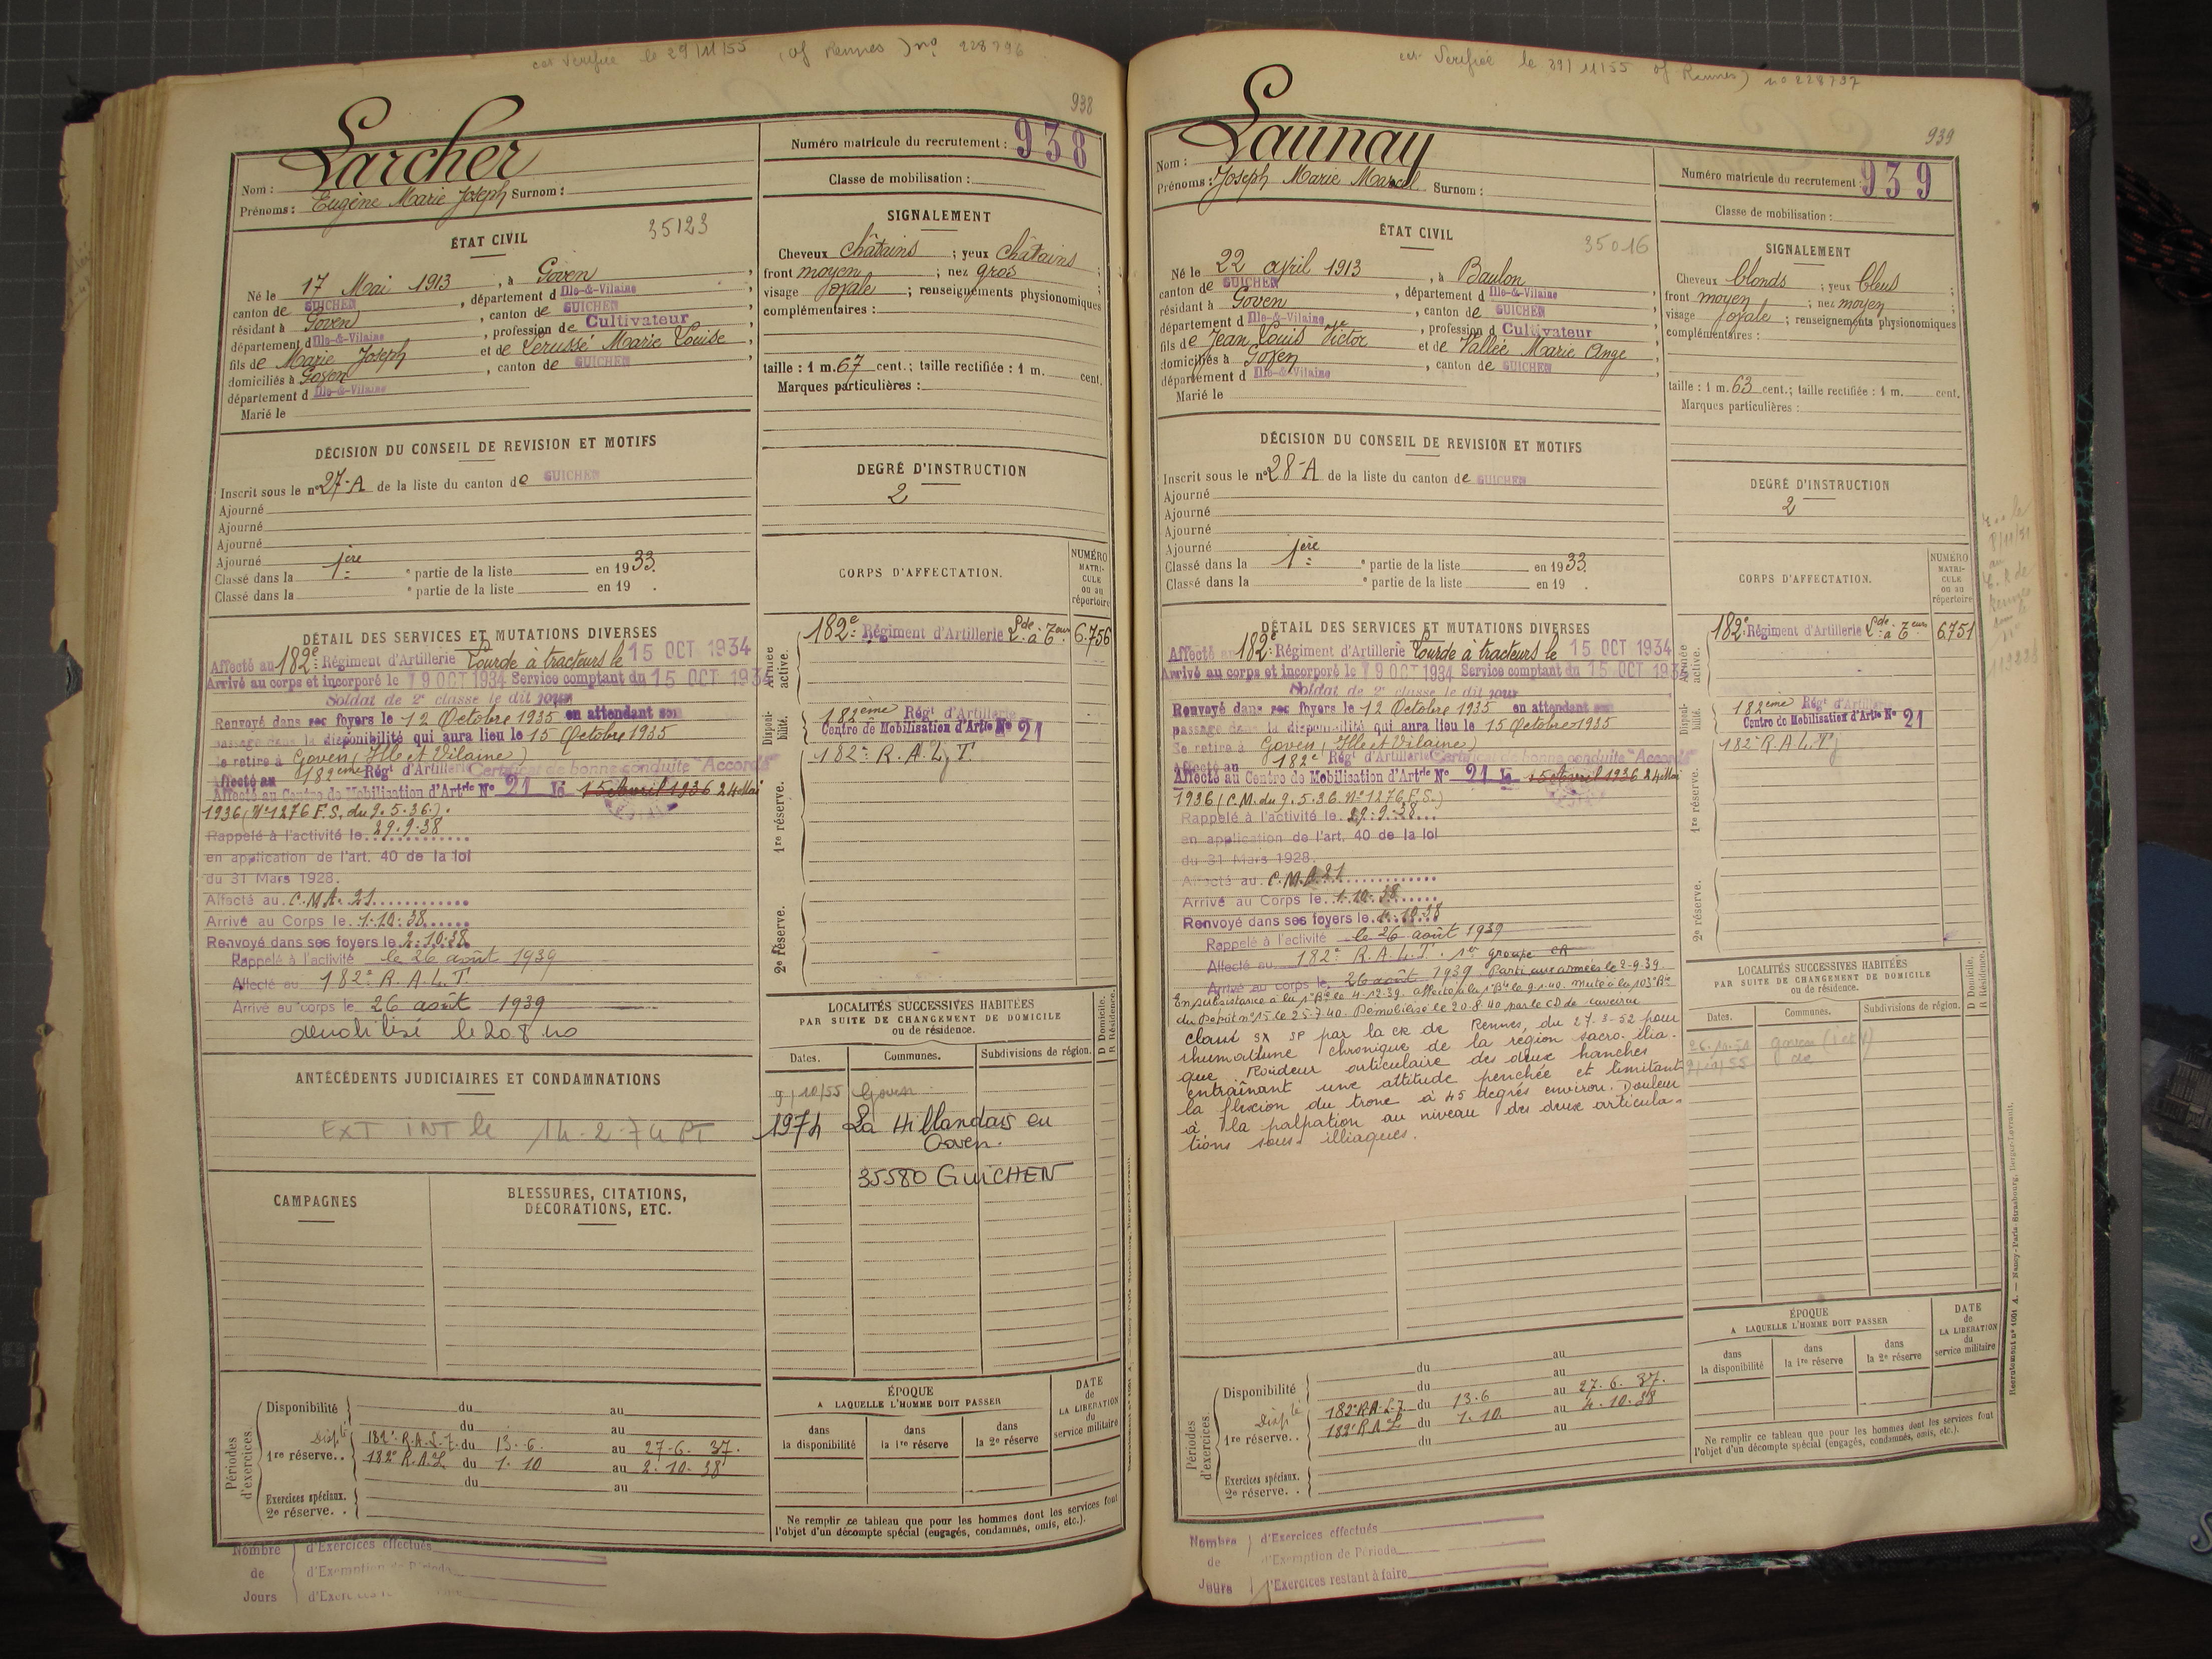 cer Verifiée le 29/11/55 (of Rennes) no 228796
938
Larcher
Nom :
Prénoms : Eugène Marie Joseph Surnom :
Numéro matricule du recrutement : 938
Classe de mobilisation :
ÉTAT CIVIL
35123
Né le 17 Mai 1913, à Goven,
canton de GUICHEN, département d Ille-&-Vilaine
résidant à Goven, canton de GUICHEN
département d Ille-&-Vilaine, profession de Cultivateur
fils de Marie Joseph et de Lerussé Marie Louise,
domiciliés à Goven, canton de GUICHEN
département d Ille-&-Vilaine
Marié le
SIGNALEMENT
Cheveux châtains ; yeux châtains ;
front moyen ; nez gros ;
visage ovale ; renseignements physionomiques
complémentaires :
taille : 1 m. 67 cent.; taille rectifiée : 1 m. cent.
Marques particulières :
DÉCISION DU CONSEIL DE REVISION ET MOTIFS
Inscrit sous le n° 27-A de la liste du canton de GUICHEN
Ajourné
Ajourné
Ajourné
Ajourné
Classé dans la 1ère e partie de la liste en 1933.
Classé dans la e partie de la liste en 19 .
DEGRÉ D'INSTRUCTION
2
DÉTAIL DES SERVICES ET MUTATIONS DIVERSES
Affecté au 182e Régiment d'Artillerie Lourde à tracteurs le 15 OCT 1934
Arrivé au corps et incorporé le 19 OCT 1934 Service comptant du 15 OCT 1934
Soldat de 2e classe le dit jour
Renvoyé dans ses foyers le 12 Octobre 1935 en attendant son
passage dans la disponibilité qui aura lieu le 15 Octobre 1935
Se retire à Goven (Ille et Vilaine)
Affecté au 182ème Régt d'Artillerie Certificat de bonne conduite "Accordé"
Affecté au Centre de Mobilisation d'Artrie N° 21 le 15 Avril 1936 24 Mai
1936 (N° 1276 F.S. du 9.5.36.).
Rappelé à l'activité le 29.9.38
en application de l'art. 40 de la loi
du 31 Mars 1928.
Affecté au C.M.A. 21
Arrivé au Corps le 1.10.38
Renvoyé dans ses foyers le 2.10.38
Rappelé à l'activité le 26 août 1939
Affecté au 182e R.A.L.T.
Arrivé au corps le 26 août 1939
démobilisé le 20 8 40
CORPS D'AFFECTATION.
NUMÉRO MATRI-CULE ou au répertoire
Armée active.
182e Régiment d'Artillerie Lde à Teur 6.756
Disponi-bilité.
182ème Régt d'Artillerie
Centre de Mobilisation d'Artie N° 21
1re réserve.
182e R.A.L.T.
2e réserve.
ANTÉCÉDENTS JUDICIAIRES ET CONDAMNATIONS
EXT INT le 14-2-74 PT
LOCALITÉS SUCCESSIVES HABITÉES
PAR SUITE DE CHANGEMENT DE DOMICILE
ou de résidence.
D Domicile. R Résidence.
Dates. Communes. Subdivisions de région.
9/10/55 Goven
1974 La Hillandais en
Goven.
35580 GUICHEN
CAMPAGNES
BLESSURES, CITATIONS,
DÉCORATIONS, ETC.
Périodes d'exercices.
Disponibilité du au
du au
Dispté
1re réserve.. 182e R.A.L.T. du 13.6. au 27.6. 37.
182e R.A.L du 1.10 au 2.10.38
du au
Exercices spéciaux.
2e réserve. .
ÉPOQUE
A LAQUELLE L'HOMME DOIT PASSER
dans la disponibilité
dans la 1re réserve
dans la 2e réserve
DATE de LA LIBÉRATION du service militaire
Ne remplir ce tableau que pour les hommes dont les services font
l'objet d'un décompte spécial (engagés, condamnés, omis, etc.).
Nombre de Jours
d'Exercices effectués
d'Exemption de Période
cer Verifiée le 29/11/55 of Rennes) no 228797
939
Launay
Nom :
Prénoms : Joseph Marie Marcel Surnom :
Numéro matricule du recrutement : 939
Classe de mobilisation :
ÉTAT CIVIL
35016
Né le 22 avril 1913, à Baulon,
canton de GUICHEN, département d Ille-&-Vilaine
résidant à Goven, canton de GUICHEN
département d Ille-&-Vilaine, profession d Cultivateur
fils de Jean Louis Victor et de Vallée Marie Ange,
domiciliés à Goven, canton de GUICHEN
département d Ille-&-Vilaine
Marié le
SIGNALEMENT
Cheveux blonds ; yeux bleus ;
front moyen ; nez moyen ;
visage ovale ; renseignements physionomiques
complémentaires :
taille : 1 m. 63 cent.; taille rectifiée : 1 m. cent.
Marques particulières :
DÉCISION DU CONSEIL DE REVISION ET MOTIFS
Inscrit sous le n° 28-A de la liste du canton de GUICHEN
Ajourné
Ajourné
Ajourné
Ajourné
Classé dans la 1ère e partie de la liste en 1933.
Classé dans la e partie de la liste en 19 .
DEGRÉ D'INSTRUCTION
2
DÉTAIL DES SERVICES ET MUTATIONS DIVERSES
Affecté au 182e Régiment d'Artillerie Lourde à tracteurs le 15 OCT 1934
Arrivé au corps et incorporé le 19 OCT 1934 Service comptant du 15 OCT 1934
Soldat de 2e classe le dit jour
Renvoyé dans ses foyers le 12 Octobre 1935 en attendant son
passage dans la disponibilité qui aura lieu le 15 Octobre 1935
Se retire à Goven (Ille et Vilaine)
Affecté au 182e Régt d'Artillerie Certificat de bonne conduite "Accordé"
Affecté au Centre de Mobilisation d'Artrie N° 21 le 15 Avril 1936 24 Mai
1936 (C.M. du 9.5.36. N° 1276 F.S.)
Rappelé à l'activité le 29.9.38
en application de l'art. 40 de la loi
du 31 Mars 1928.
Affecté au C.M.A 21
Arrivé au Corps le 1.10.38
Renvoyé dans ses foyers le 4.10.38
Rappelé à l'activité le 26 août 1939
Affecté au 182e R.A.L.T. 1er groupe CR
Arrivé au corps le 26 août 1939. Parti aux armées le 2-9-39.
En subsistance à la 1e Bie le 4-12-39. affecté à la 1e Bie le 9.1.40. muté à la 103e Bie
du Dépôt n° 15 le 25.7.40. Démobilisé le 20.8.40 par le CD de
classé SX SP par la CR de Rennes, du 27-3-52 pour
rhumatisme chronique de la région sacro-ilia-
que Roideur articulaire des deux hanches
entraînant une attitude penchée et limitant
la flexion du tronc à 45 degrés environ. Douleur
à la palpation au niveau des deux articula-
tions sous-illiaques.
CORPS D'AFFECTATION.
NUMÉRO MATRI-CULE ou au répertoire
Armée active.
182e Régiment d'Artillerie Lde à Teur 6751
Disponi-bilité.
182ème Régt d'Artillerie
Centre de Mobilisation d'Artie N° 21
1re réserve.
182e R.A.L.T
2e réserve.
LOCALITÉS SUCCESSIVES HABITÉES
PAR SUITE DE CHANGEMENT DE DOMICILE
ou de résidence.
D Domicile. R Résidence.
Dates. Communes. Subdivisions de région.
Goven (I et V)
9/10/55 do
Périodes d'exercices.
Disponibilité du au
du au
Dispté
1re réserve.. 182e R.A.L.T. du 13.6 au 27.6. 37.
182e R.A.L du 1.10. au 4.10.38
du au
Exercices spéciaux.
2e réserve. .
ÉPOQUE
A LAQUELLE L'HOMME DOIT PASSER
dans la disponibilité
dans la 1re réserve
dans la 2e réserve
DATE de LA LIBÉRATION du service militaire
Ne remplir ce tableau que pour les hommes dont les services font
l'objet d'un décompte spécial (engagés, condamnés, omis, etc.).
Nombre de Jours
d'Exercices effectués
d'Exemption de Période
d'Exercices restant à faire
Recrutement n° 1691 A. — Nancy-Paris-Strasbourg, Berger-Levrault.